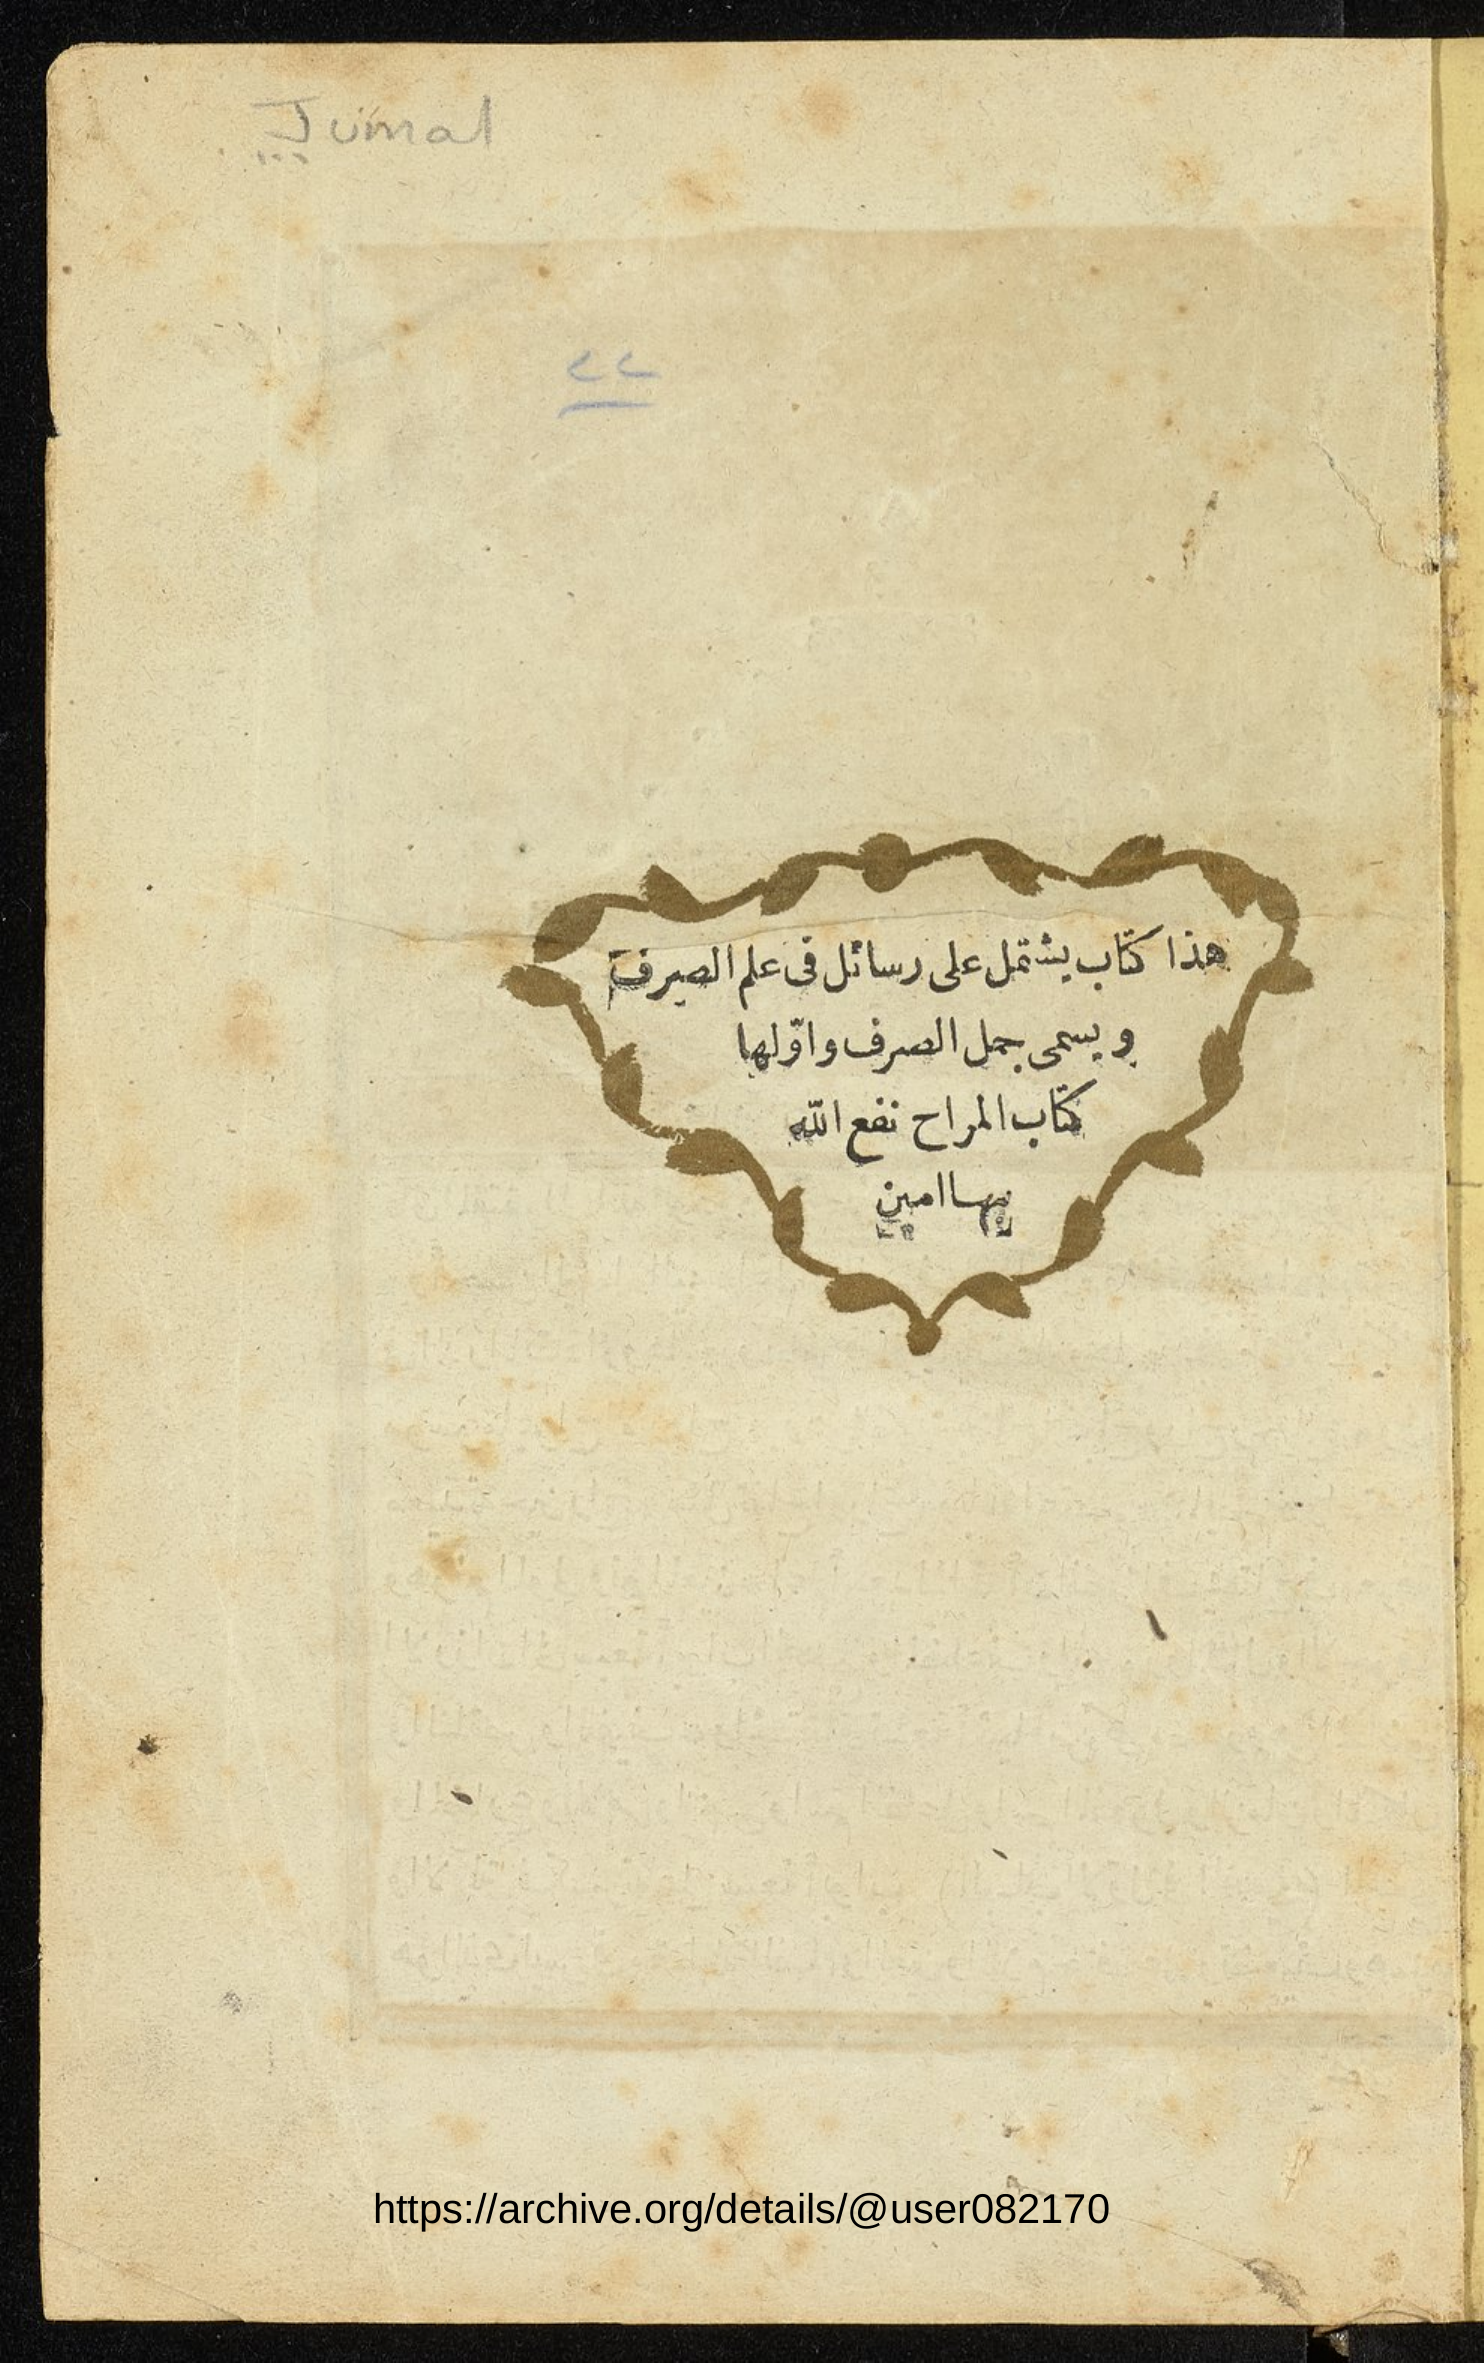 Jumal
٢٢
هذا كتاب يشتمل على رسائل فى علم الصرف
و يسمى جمل الصرف واوّلها
كتاب المراح نفع الله
بها امين
https://archive.org/details/@user082170